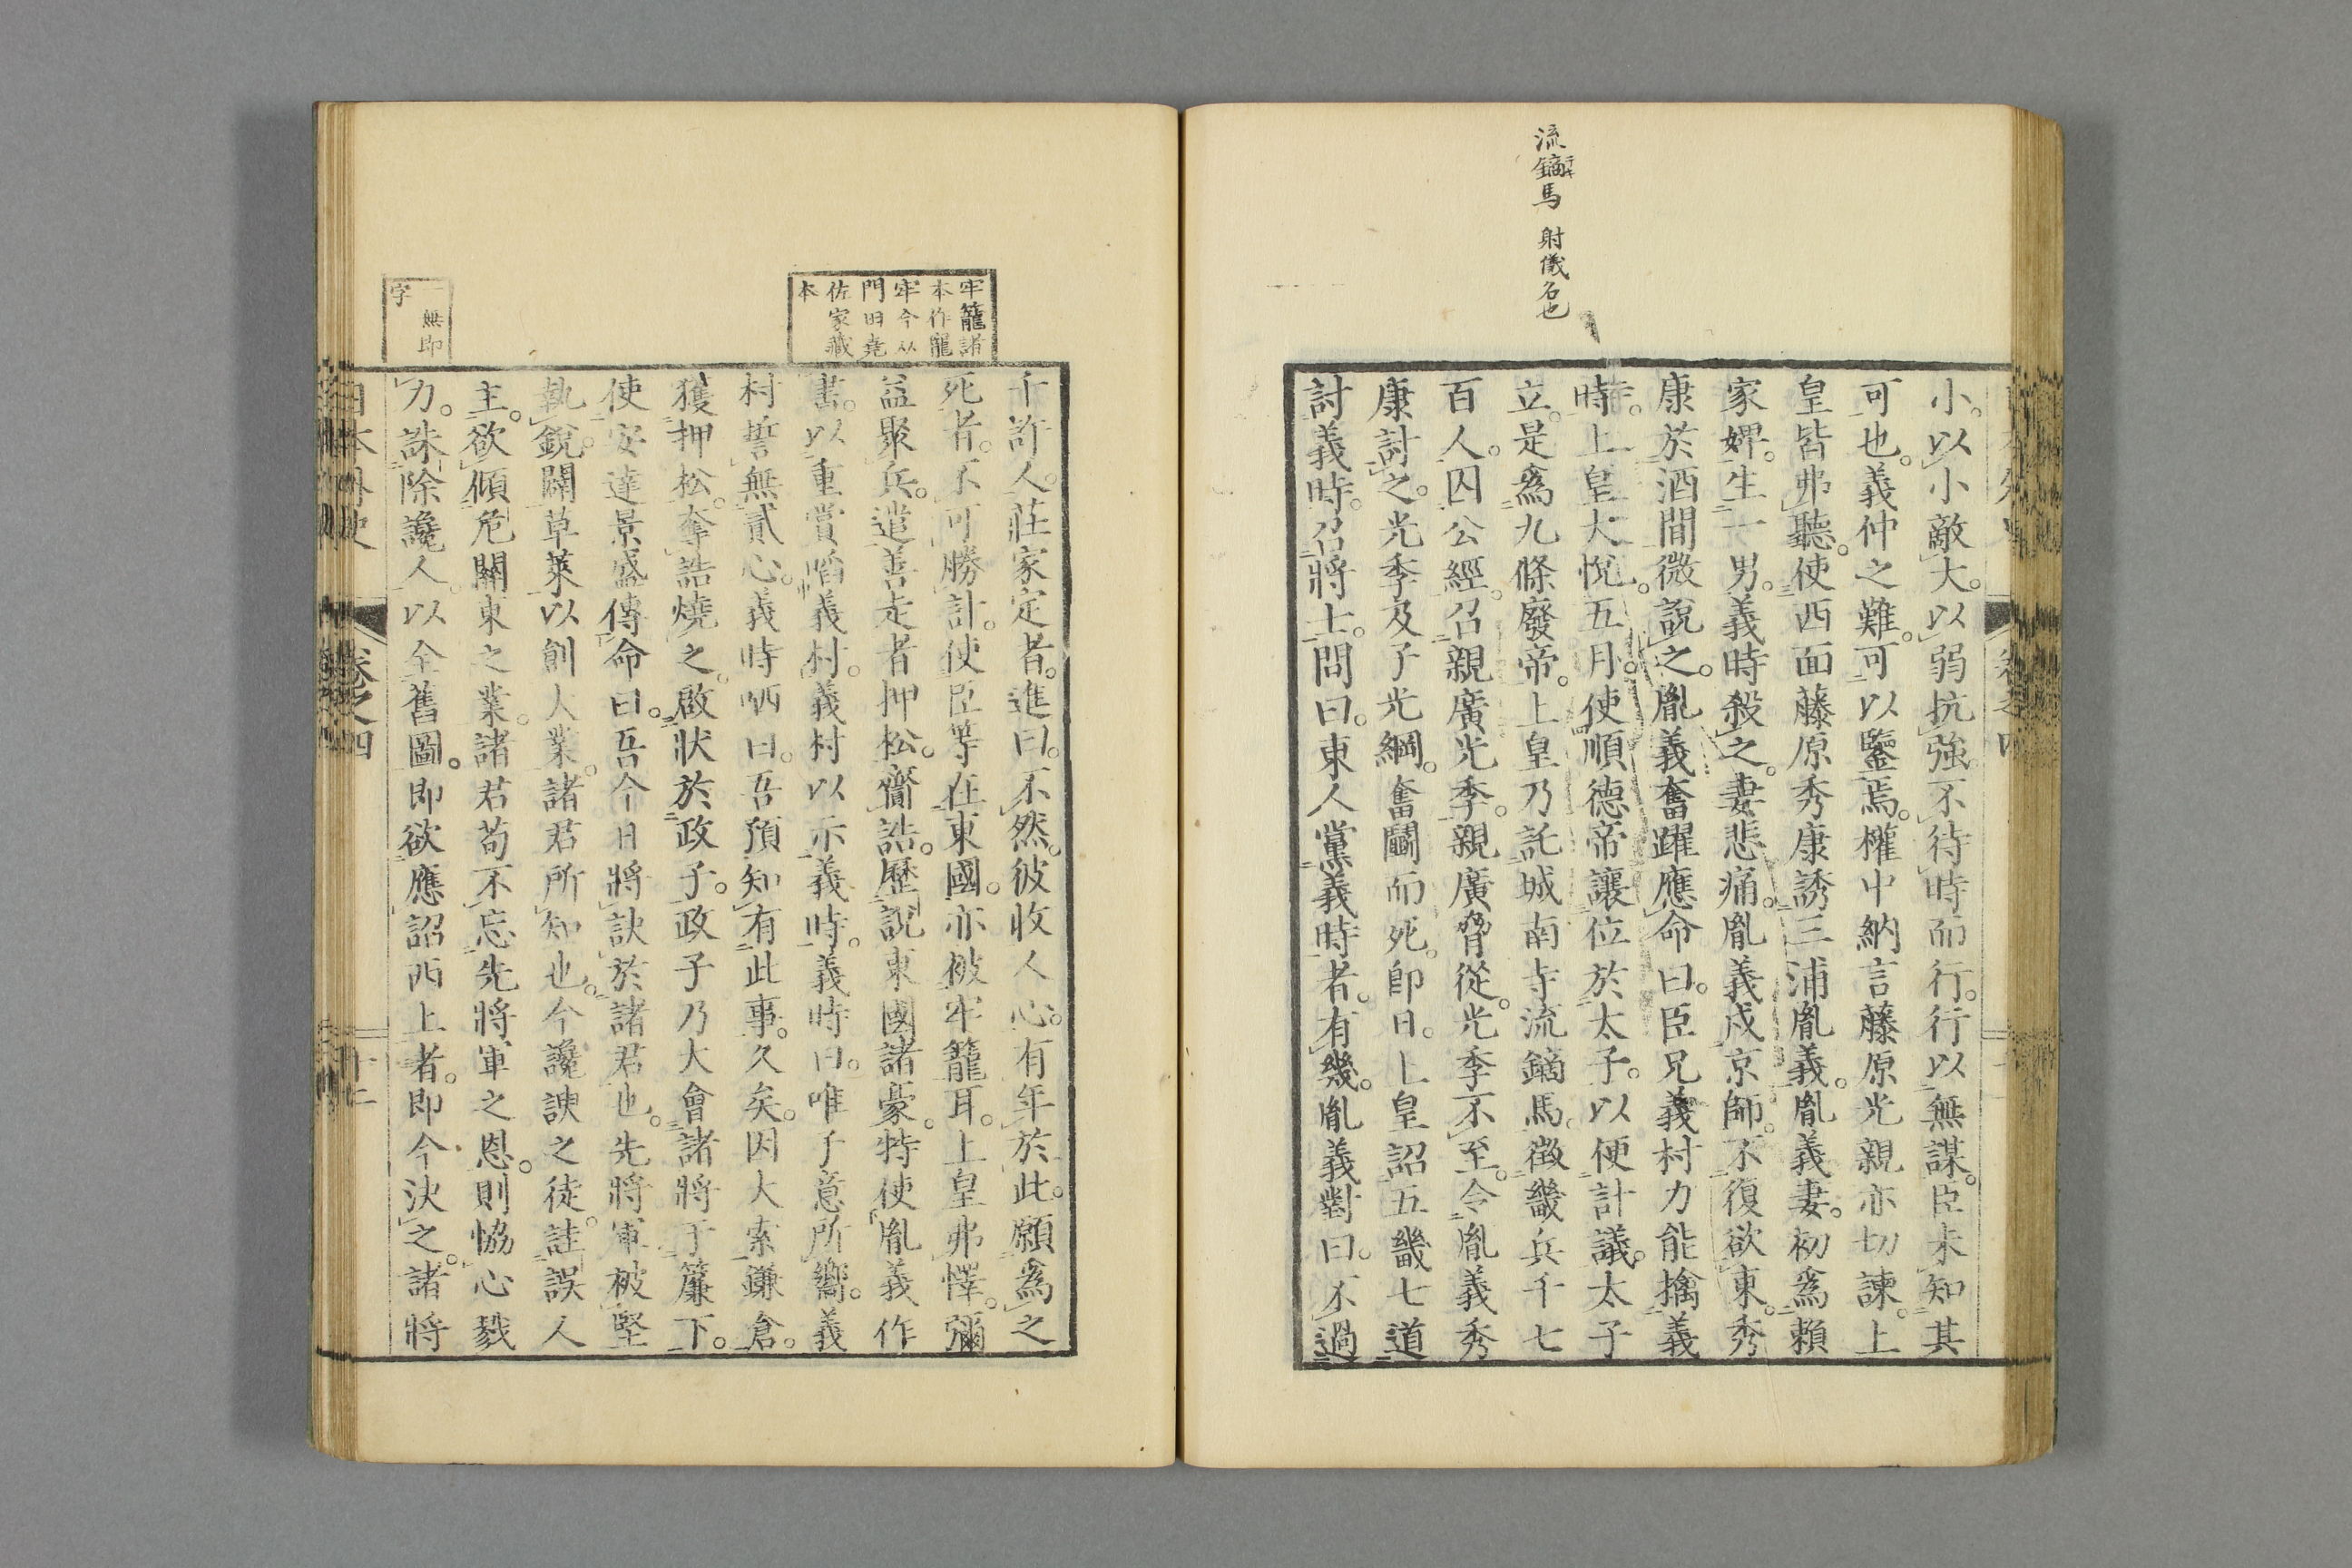 流鏑馬 射儀名也
小。以小敵大。以弱抗強。不待時而行。行以無謀。臣未知其
可也。義仲之難。可以鑒焉。權中納言藤原光親亦切諫。上
皇皆弗聽。使西面藤原秀康誘三浦胤義。胤義妻。初爲賴
家婢。生一男。義時殺之。妻悲痛。胤義戍京師。不復欲東。秀
康於酒間微說之。胤義奮躍應命曰。臣兄義村力能擒義
時。上皇大悅。五月。使順德帝讓位於太子。以便計議。太子
立。是爲九條廢帝。上皇乃託城南寺流鏑馬。徵畿兵千七
百人。囚公經。召親廣光季。親廣脅從。光季不至。令胤義秀
康討之。光季及子光綱。奮鬭而死。即日。上皇詔五畿七道
討義時。召將士。問曰。東人黨義時者。有幾。胤義對曰。不過
千許人。莊家定者。進曰。不然。彼收人心。有年於此。願爲之
死者。不可勝計。使臣等在東國。亦被牢籠耳。上皇弗懌。彌
益聚兵。遣善走者押松。齎誥。歷說東國諸豪。特使胤義作
書。以重賞啗義村。義村以示義時。義時曰。唯子意所嚮。義
村誓無貳心。義時哂曰。吾預知有此事。久矣。因大索鎌倉。
獲押松。奪誥燒之。啟狀於政子。政子乃大會諸將于簾下。
使安達景盛傳命曰。吾今日將訣於諸君也。先將軍被堅
執銳。闢草萊以創大業。諸君所知也。今讒諛之徒。詿誤人
主。欲傾危關東之業。諸君苟不忘先將軍之恩。則恊心戮
力。誅除讒人。以全舊圖。即欲應詔西上者。即今決之。諸將
日本外史 卷之四 十二
牢籠諸
本作龍
牢今从
門田堯
佐家藏
本
一無即
字